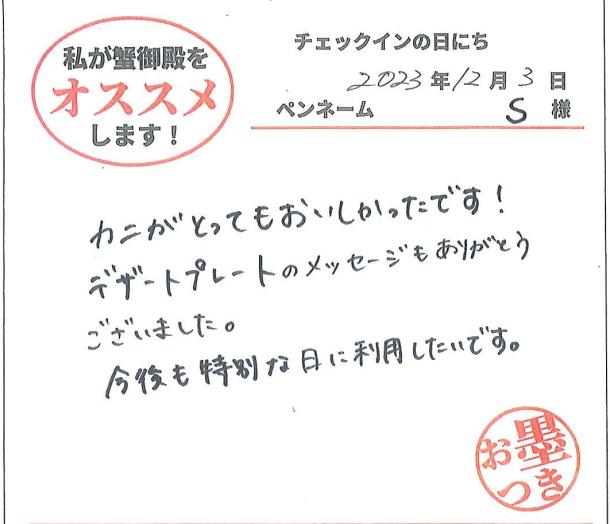 私が蟹御殿を
オススメ
します！
チェックインの日にち
2023年12月3日
ペンネーム S 様
カニがとってもおいしかったです！
デザートプレートのメッセージもありがとう
ございました。
今後も特別な日に利用したいです。
お墨
つき